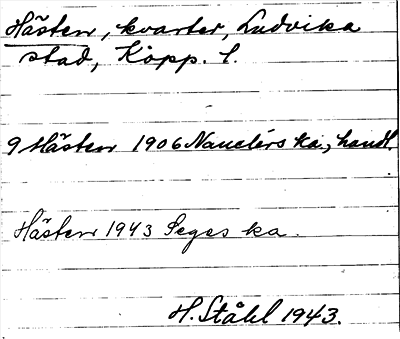 Hästen, kvarter, Ludvika
stad, Kopp. l.
9 Hästen 1906 Nauclérs ka, handl.
Hästen 1943 Seges ka.
H. Ståhl 1943.